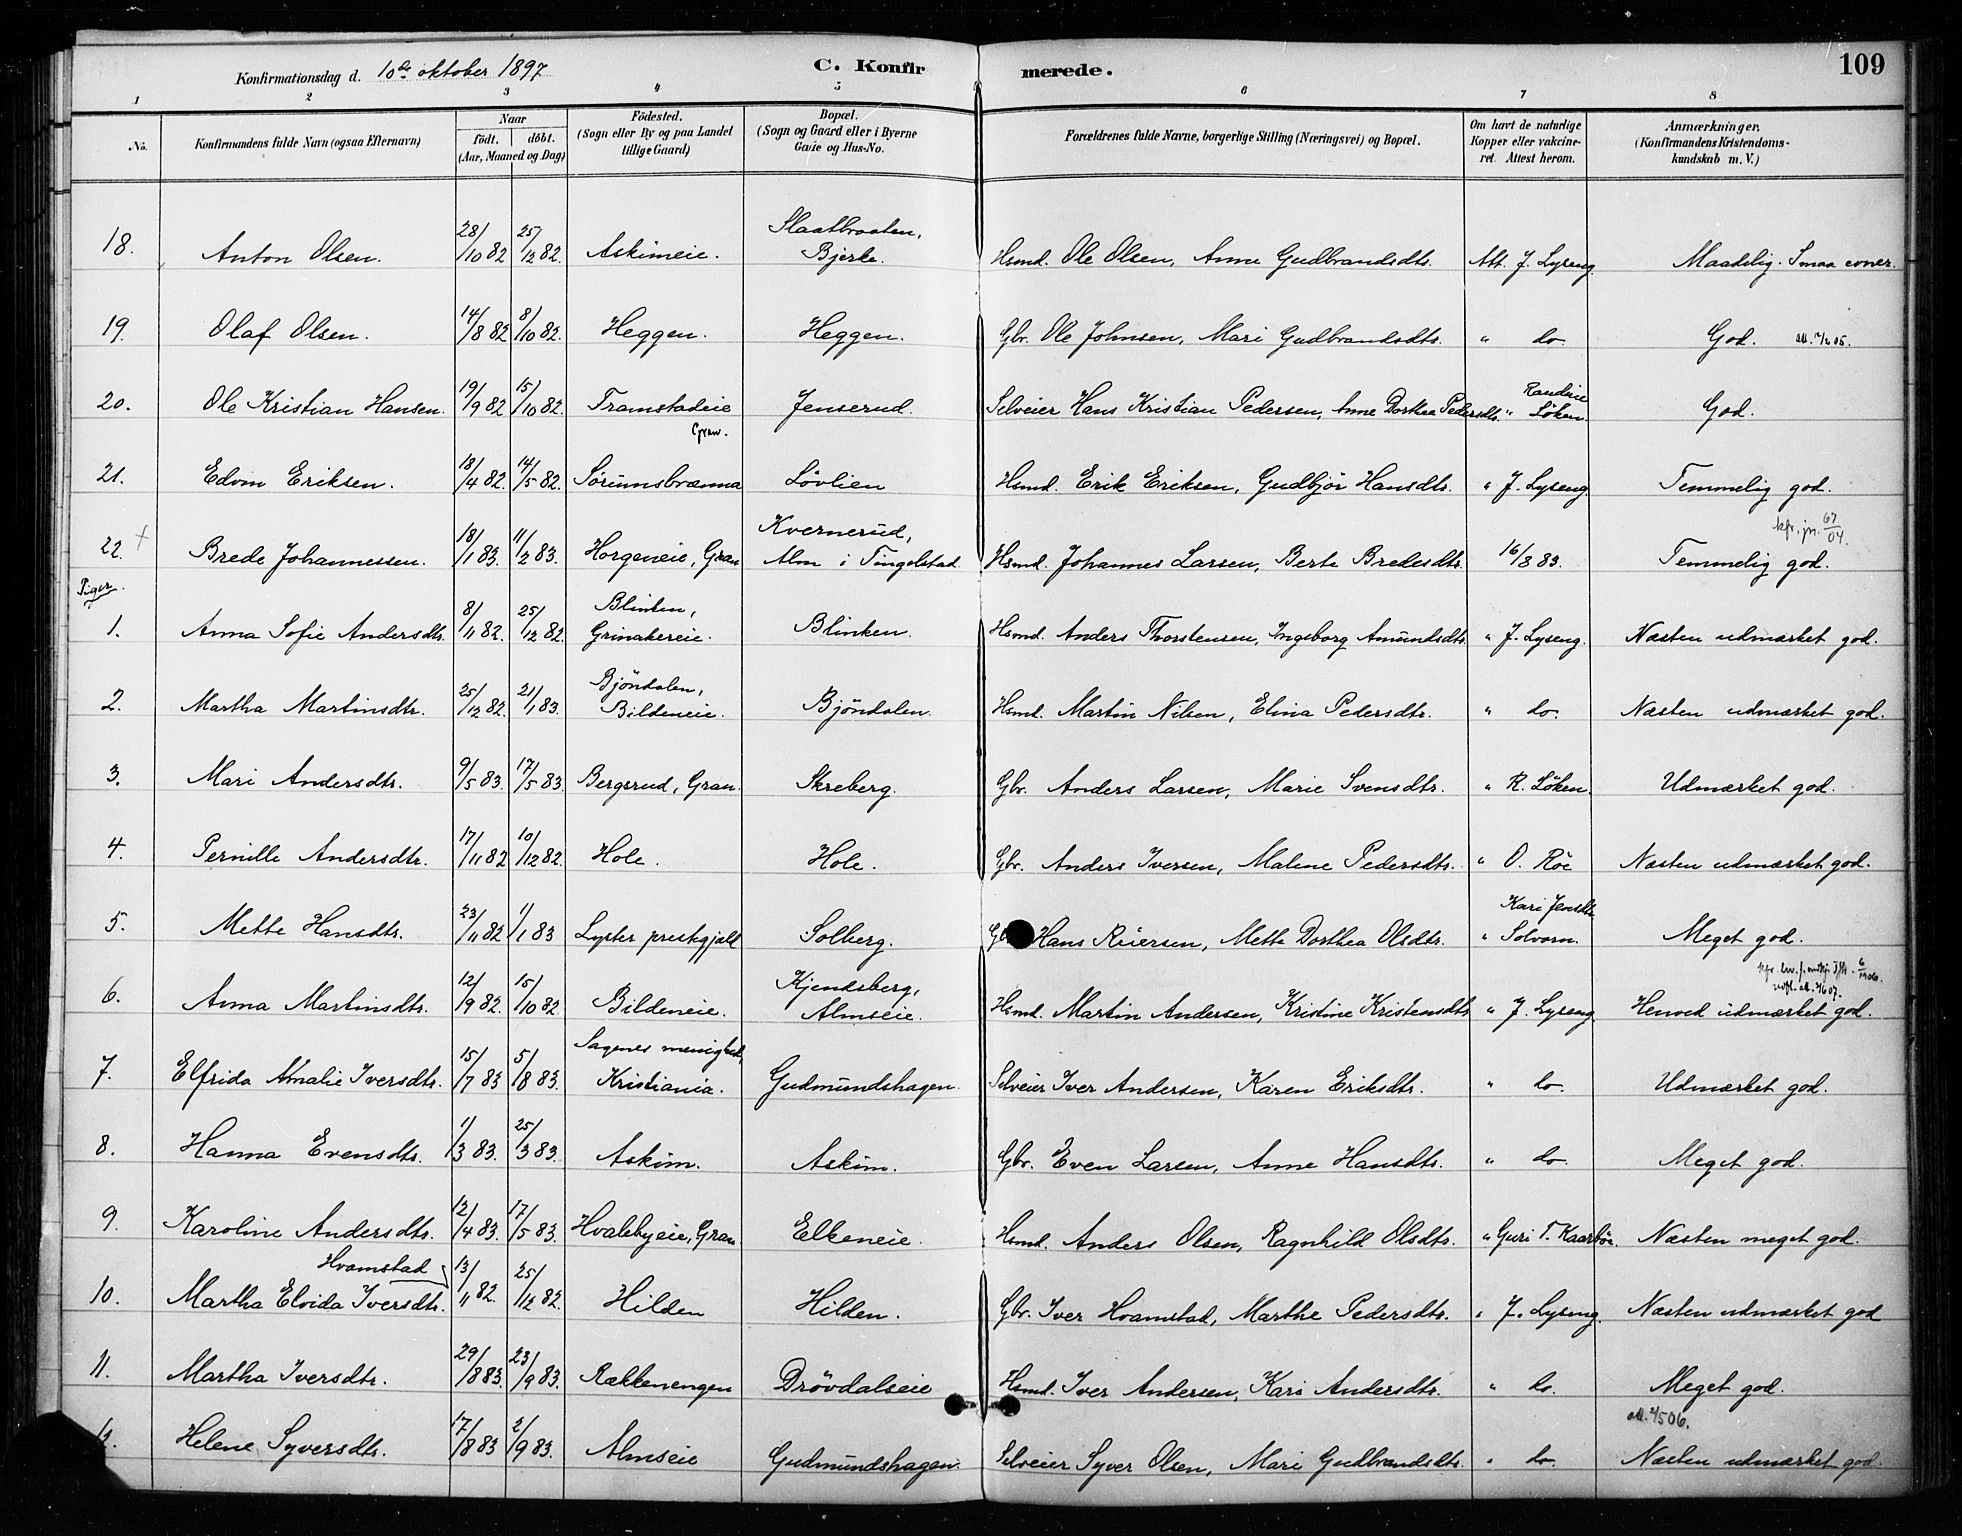 Konfirmationsdag d. 10de oktober 1897 C. Konfirmerede. 109
1 2 3 4 5 6 7 8
No. Konfirmandens fulde Navn (ogsaa Efternavn) Naar födt. döbt. (Aar, Maaned og Dag) Födested. (Sogn eller By og paa Landet tillige Gaard) Bopæl. (Sogn og Gaard eller i Byerne Gade og Hus-No. Forældrenes fulde Navne, borgerlige Stilling (Næringsvei) og Bopæl. Om havt de naturlige Kopper eller vakcineret. Attest herom. Anmærkninger. (Konfirmandens Kristendomskundskab m. V.)
18. Anton Olsen. 28/10 82 25/12 82. Askimeie. Slaatbraaten, Bjerke. Hsmd. Ole Olsen, Anne Gudbrandsdtr. Att. J. Lyseng. Maadelig. Smaa evner.
19. Olaf Olsen. 14/8 82 8/10 82. Heggen. Heggen. Gbr. Ole Johnsen, Mari Gudbrandsdtr. " do. God.
20. Ole Kristian Hansen. 19/9 82 15/10 82. Tramstadeie Gran. Jenserud. Selveier Hans Kristian Pedersen, Anne Dorthea Pedersdtr. " Randine Löken. God.
21. Edvin Eriksen. 18/4 82. 14/5 82. Sörumsbrænna Lövlien Hsmd. Erik Eriksen, Gudbjör Hansdtr. " J. Lyseng. Temmelig god.
22. Brede Johannessen. 18/1 83. 11/2 83. Horgeneie, Gran Kvernerud, Alm i Tingelstad Hsmd. Johannes Larsen, Berte Bredesdtr. 16/8 83. kfr. jn. 67/04. Temmelig god.
Piger.
1. Anna Sofie Andersdtr. 8/11 82. 25/12 82. Blinken, Grinakereie. Blinken. Hsmd. Anders Thorstensen, Ingeborg Amundsdtr. " J. Lyseng. Næsten udmærket god.
2. Martha Martinsdtr. 25/12 82. 21/1 83. Bjöndalen, Bildeneie. Bjöndalen. Hsmd. Martin Nilsen, Elina Pedersdtr. " do. Næsten udmærket god.
3. Mari Andersdtr. 9/5 83. 17/5 83. Bergsrud, Gran. Skreberg. Gbr. Anders Larsen, Marie Svensdtr. " R. Löken. Udmærket god.
4. Pernille Andersdtr. 17/11 82 10/12 82. Hole. Hole. Gbr. Anders Iversen, Malene Pedersdtr. " O. Röe Næsten udmærket god.
5. Mette Hansdtr. 23/11 82 1/1 83 Lyster prestgjæld Solberg. Gbr. Hans Reiersen, Mette Dorthea Olsdtr. " Kari Jensdtr. Solvorn. Meget god.
6. Anna Martinsdtr. 12/9 82. 15/10 82. Bildeneie. Kjendsberg, Almseie. Hsmd. Martin Andersen, Kristine Kristensdtr. " J. Lyseng. Henved udmærket god.
7. Elfrida Amalie Iversdtr. 15/7 83 5/8 83. Sagenes menighed, Kristiania. Gudmundshagen. Selveier Iver Andersen, Karen Eriksdtr. " do. Udmærket god.
8. Hanna Evensdtr. 1/3 83. 25/3 83. Askim. Askim. Gbr. Even Larsen, Anne Hansdtr. " do. Meget god.
9. Karoline Andersdtr. 12/4 83. 17/5 83. Hvalebyeie, Gran Elkeneie. Hsmd. Anders Olsen, Ragnhild Olsdtr. " Guri T. Kaarböe. Næsten meget god.
10. Martha Elvida Iversdtr. Hvamstad 13/11 82. 25/12 82. Hilden Hilden. Gbr. Iver Hvamstad, Marthe Pedersdtr. " J. Lyseng. Næsten udmærket god
11. Martha Iversdtr. 29/8 83. 23/9 83. Rækkenengen Drövdalseie Hsmd. Iver Andersen, Kari Andersdtr. " do. Meget god.
12. Helene Syversdtr. 17/8 83 2/9 83. Almseie Gudmundshagen. Selveier Syver Olsen, Mari Gudbrandsdtr. " do. Næsten udmærket god.